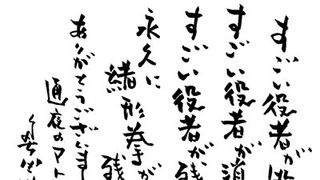 すごい役者が
すごい役者が消
すごい役者が残
永久に
緒形拳が残
ありがとうございま
通夜のアト